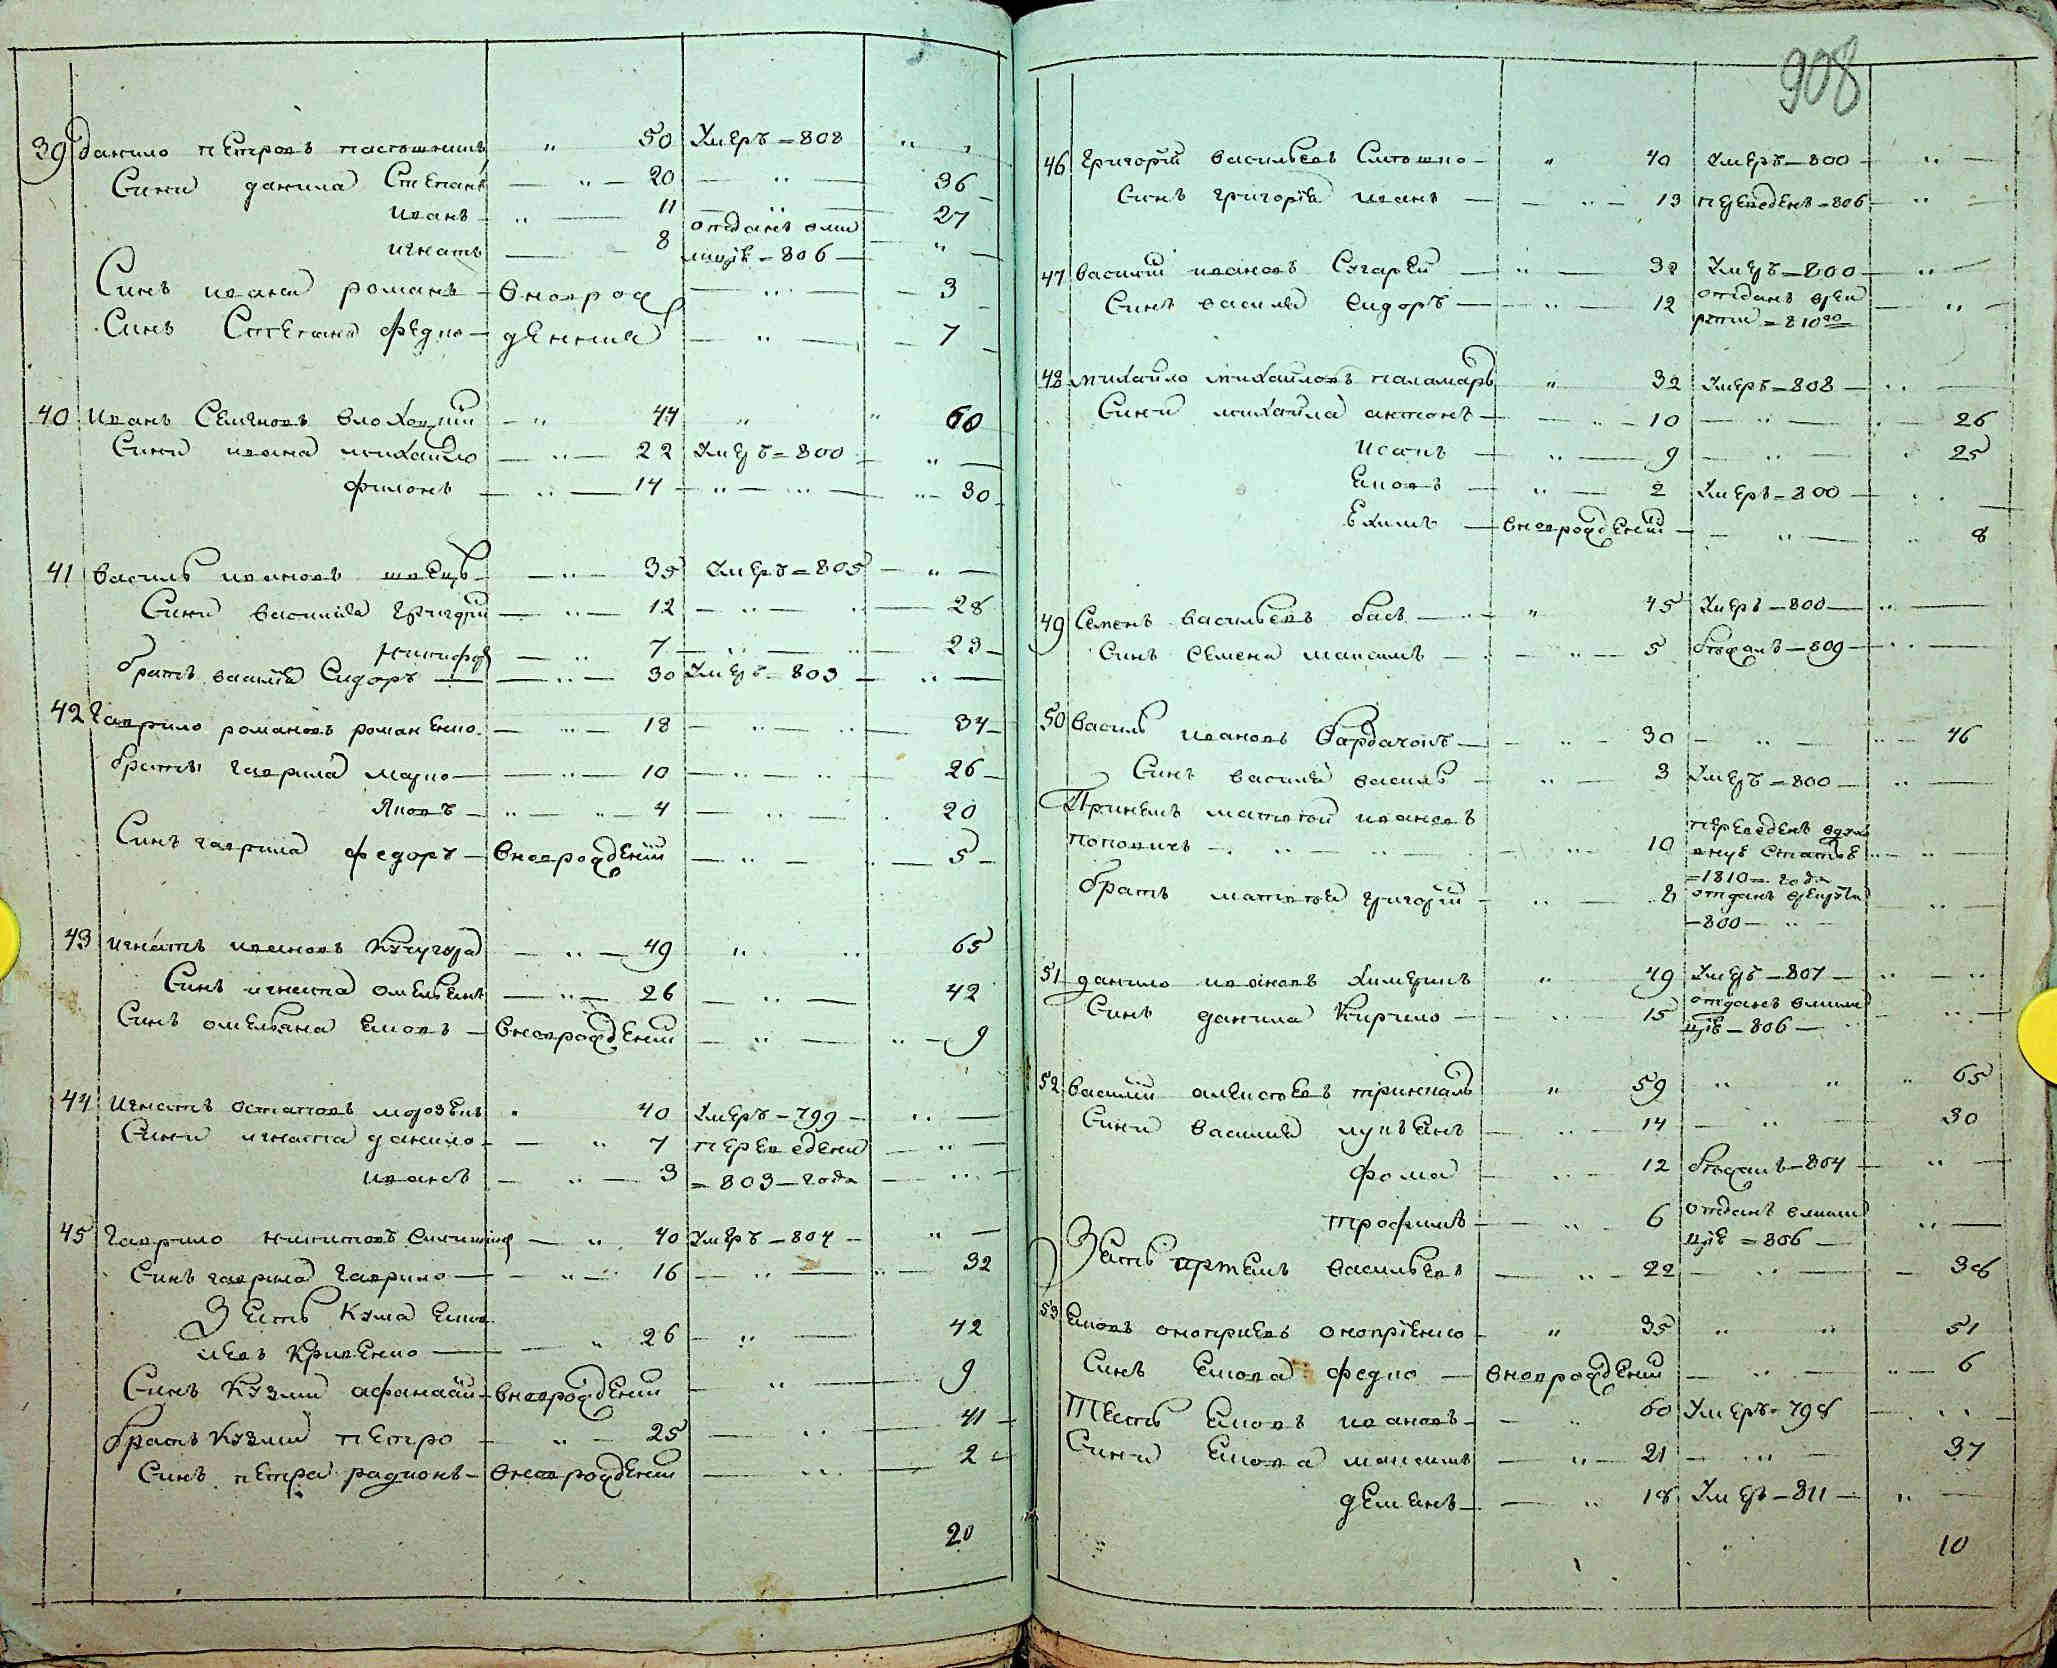 39 Данило Петровъ 50 Умеръ = 808
Сини данила Степанъ 20 36
Иванъ 11 27
игнатъ 8 отданъ вми
лицiю = 806
Синъ ивана романъ вноврож 3
Синъ Степана Федко денния 7
40 Иванъ Семѣновъ 44 60
Сини ивана михайло 22 Умеръ = 800
филонъ 14 30
41 Василь ивановъ швецъ 35 Умеръ = 805
Сини василiя григорiй 12 28
никифор 7 23
братъ василiя Сидоръ 30 Умеръ = 803
42 Гаврило романовъ романенко 18 34
братья гаврила марко 10 26
Яковъ 4 20
Синъ гаврила федоръ вноврожденiй 5
43 игнатъ ивановъ Кучугура 49 65
Синъ игната омельянъ 26 42
Синъ омеляна Яковъ вноврожденiй 9
44 Игнатъ остаповъ 40 Умеръ - 799
Сини игната данило 7 переведени
иванъ 3 = 803 - года
45 Гаврило никитовъ 40 Умеръ - 804
Синъ гаврила гаврило 16 32
Зять Кузма Яков
левъ Кривенко 26 42
Синъ Кузми афанасiй вноврожденiй 9
братъ Кузми петро 25 41
Синъ петра радионъ вноврожденiй 2
20
908
46 Григорiй васильевъ 40 Умеръ - 800
Синъ григорiя иванъ 13 переведенъ - 806
47 василiй ивановъ 32 Умеръ - 800
Синъ василiя Сидоръ 12 отданъ врек
рути = 810го
48 михайло михайловъ паламарь 32 Умеръ - 808
Сини михайла антонъ 10 26
Исакъ 9 25
Яковъ 2 Умеръ - 800
Екимъ вноврожденiй 8
49 Семенъ васильевъ басъ 45 Умеръ - 800
Синъ Семена максимъ 5 бѣжалъ - 809
50 Василь ивановъ 30 46
Синъ василя василь 3 Умеръ = 800
Прiиемъ матвѣй ивановъ
поповичъ 10 переведенъ
= 1810 = года
братъ матвѣя григорiй 2 отданъ
- 800 -
51 данило ивановъ 49 Умеръ - 807
Синъ данила Кирило 15 отданъ вмили
цiю - 806
52 василiй алексѣевъ 59 65
Сини василия лукъянъ 14 30
фома 12 бѣжалъ - 804
трофимъ 6 отданъ вмили
цiю = 806
Зять артемъ васильевъ 22 38
53 Яковъ оноприевъ оноприенко 35 51
Синъ Якова федко вноврожденiй 6
Тесть Яковъ ивановъ 60 Умеръ - 798
Сини Якова максимъ 21 37
демянъ 18 Умеръ - 811
10